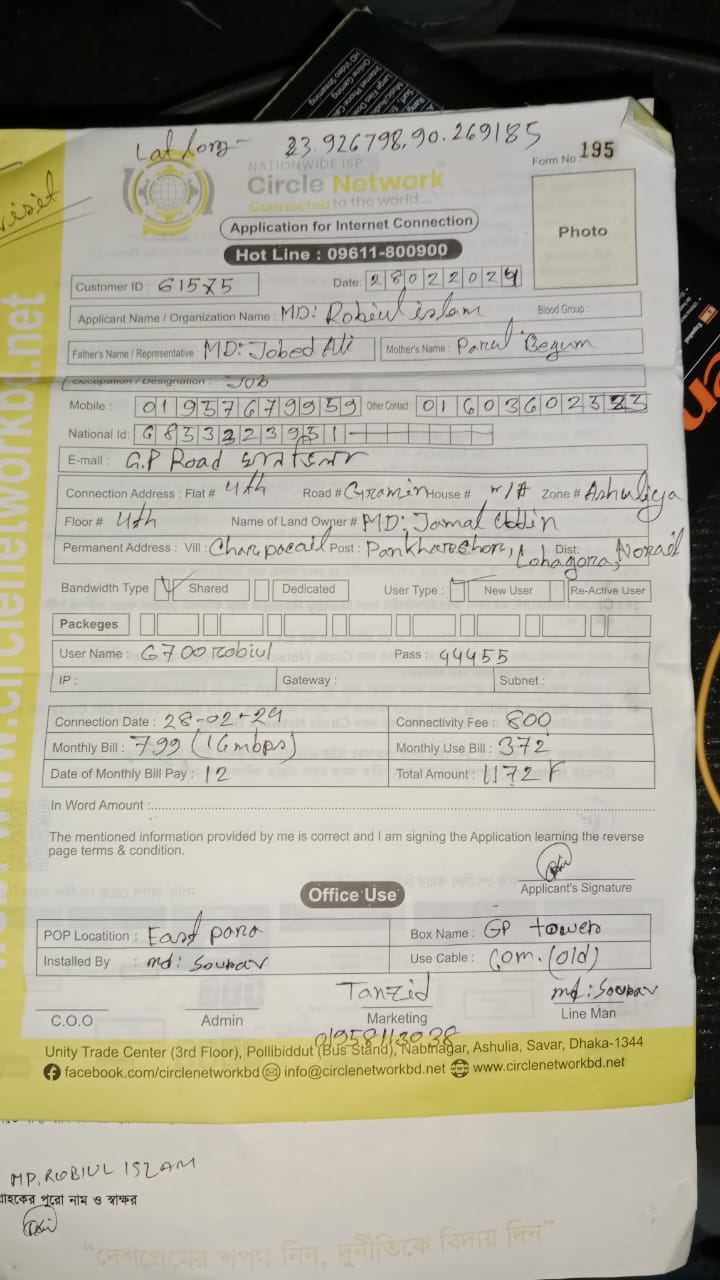 Lat Long - 23.926798,90.269185
visit
NATIONWIDE ISP
Form No 195
Circle Network
Connected to the world....
Application for Internet Connection
Photo
Hot Line : 09611-800900
Customer ID : 61575 Date: 28022024
Applicant Name / Organization Name : MD: Robiul islam Blood Group :
Father's Name / Representative : MD: Jobed Ali Mother's Name : Parul Begum
Occupation / Designation : Job
Mobile : 01937679959 Other Contact : 01603602323
National Id:
E-mail : G.P Road
Connection Address : Flat # 4th Road # Gramin House # n/A Zone # Ashuliya
Floor # 4th Name of Land Owner # MD: Jamal Uddin
Permanent Address : Vill : Post : Lohagora, Dist: Norail
Bandwidth Type Shared Dedicated User Type : New User Re-Active User
Packeges
User Name : 6700robiul Pass : 44455
IP : Gateway : Subnet :
Connection Date : 28-02-24 Connectivity Fee : 800
Monthly Bill : 799 (16mbps) Monthly Use Bill : 372
Date of Monthly Bill Pay : 12 Total Amount : 1172
In Word Amount :
The mentioned information provided by me is correct and I am signing the Application learning the reverse
page terms & condition.
Applicant's Signature
Office Use
POP Locatition : East para Box Name : GP tower
Installed By : md: Sourav Use Cable : Com. (old)
Tanzid md: Sourav
C.O.O Admin Marketing Line Man
01958113038
Unity Trade Center (3rd Floor), Pollibiddut (Bus Stand), Nabinagar, Ashulia, Savar, Dhaka-1344
facebook.com/circlenetworkbd info@circlenetworkbd.net www.circlenetworkbd.net
www.circlenetworkbd.net
MD. ROBIUL ISLAM
গ্রাহকের পুরো নাম ও স্বাক্ষর
“দেশপ্রেমের শপথ নিন, দুর্নীতিকে বিদায় দিন”